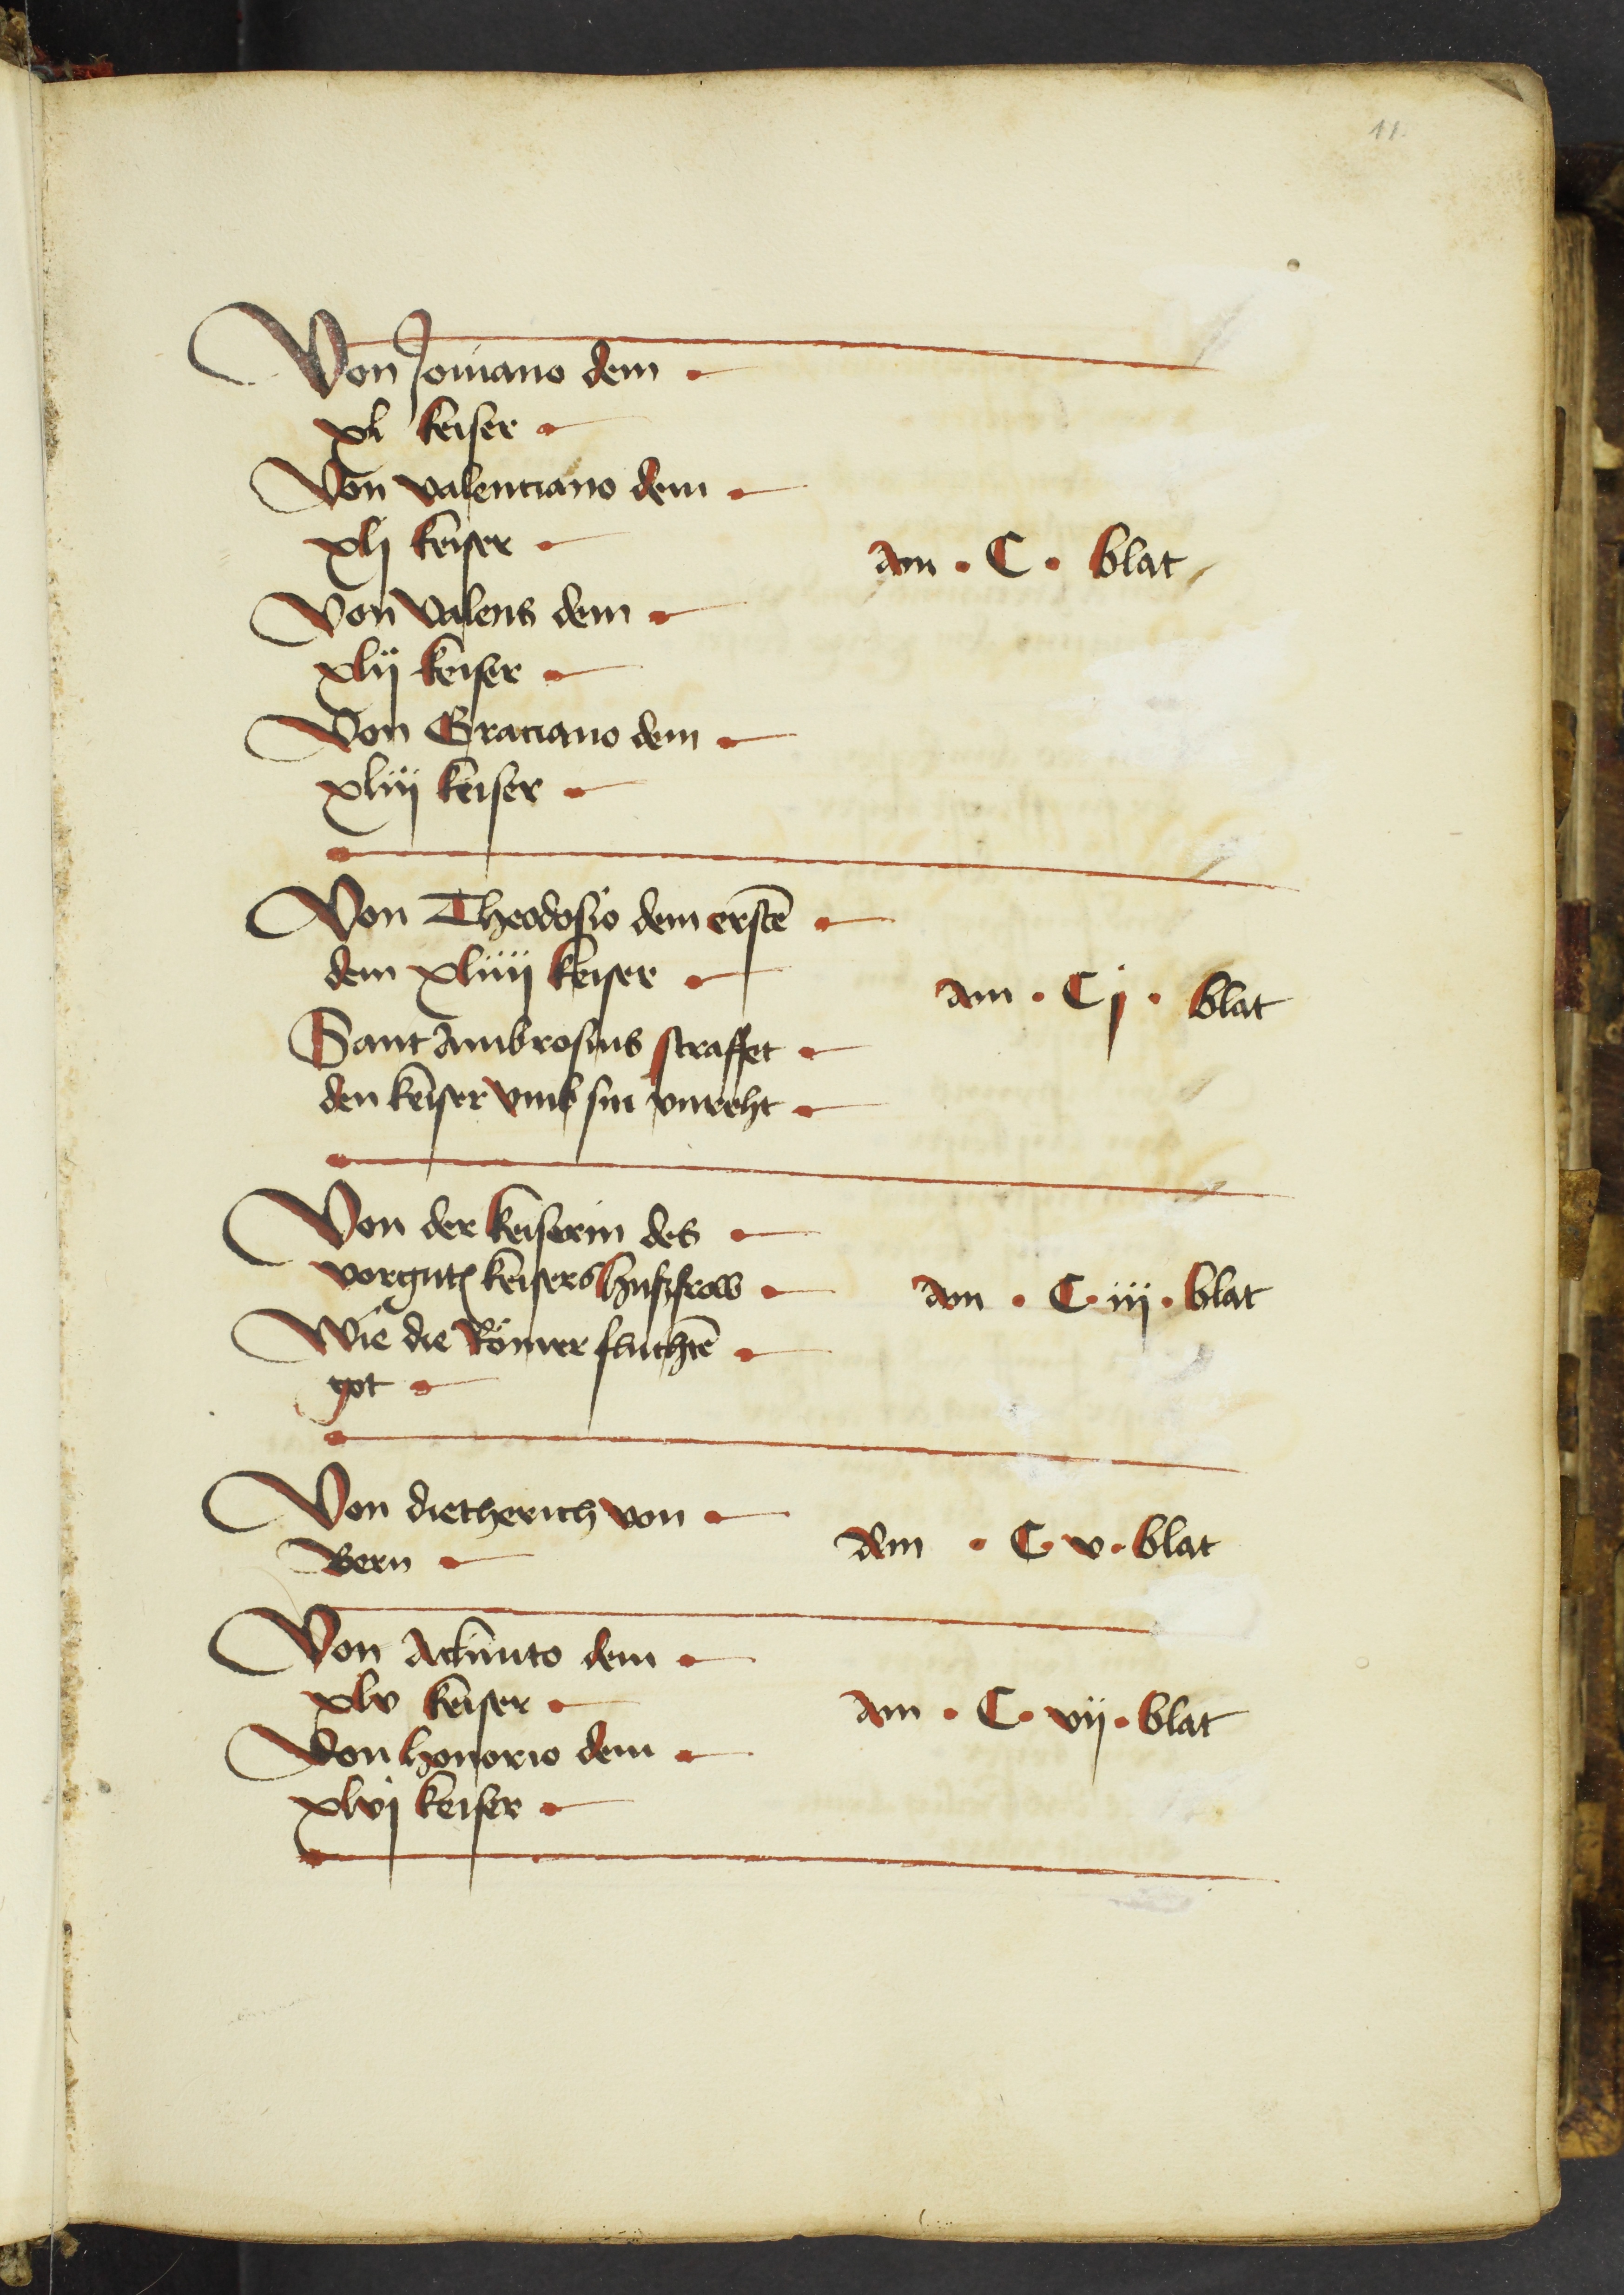 11.
Von Jouiano dem
xl keiser
Von valenciano dem
xlj keiser
am · C · blat
Von Valens dem
xlij keiser
Von Graciano dem
xliij keiser
Von Theodosio dem erstē
dem xliiij keiser
am · Cj · blat
Sant Ambrosius straffet
den keiser vmb sin vnreht
Von der keiserin des
keisers huszfrow
am · C · iij · blat
Wie die Römer fluchtē
got
Von dietherich von
Bern
am · C · v · blat
Von dem
xlv keiser
am · C · vij · blat
Von honorio dem
xlvj keiser